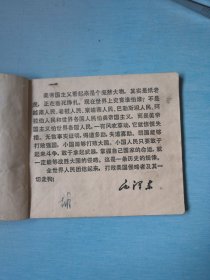 美帝国主义看起来是个庞然大物，其实是纸老
虎，正在垂死挣扎。现在世界上究竟谁怕谁？不是
越南人民、老挝人民、柬埔寨人民、巴勒斯坦人民、阿
拉伯人民和世界各国人民怕美帝国主义，而是美帝
国主义怕世界各国人民，一有风吹草动，它就惊慌失
措。无数事实证明，得道多助，失道寡助。弱国能够
打败强国，小国能够打败大国。小国人民只要敢于
起来斗争，敢于拿起武器，掌握自己国家的命运，就
一定能够战胜大国的侵略。这是一条历史的规律。
全世界人民团结起来，打败美国侵略者及其一
切走狗！
毛泽东